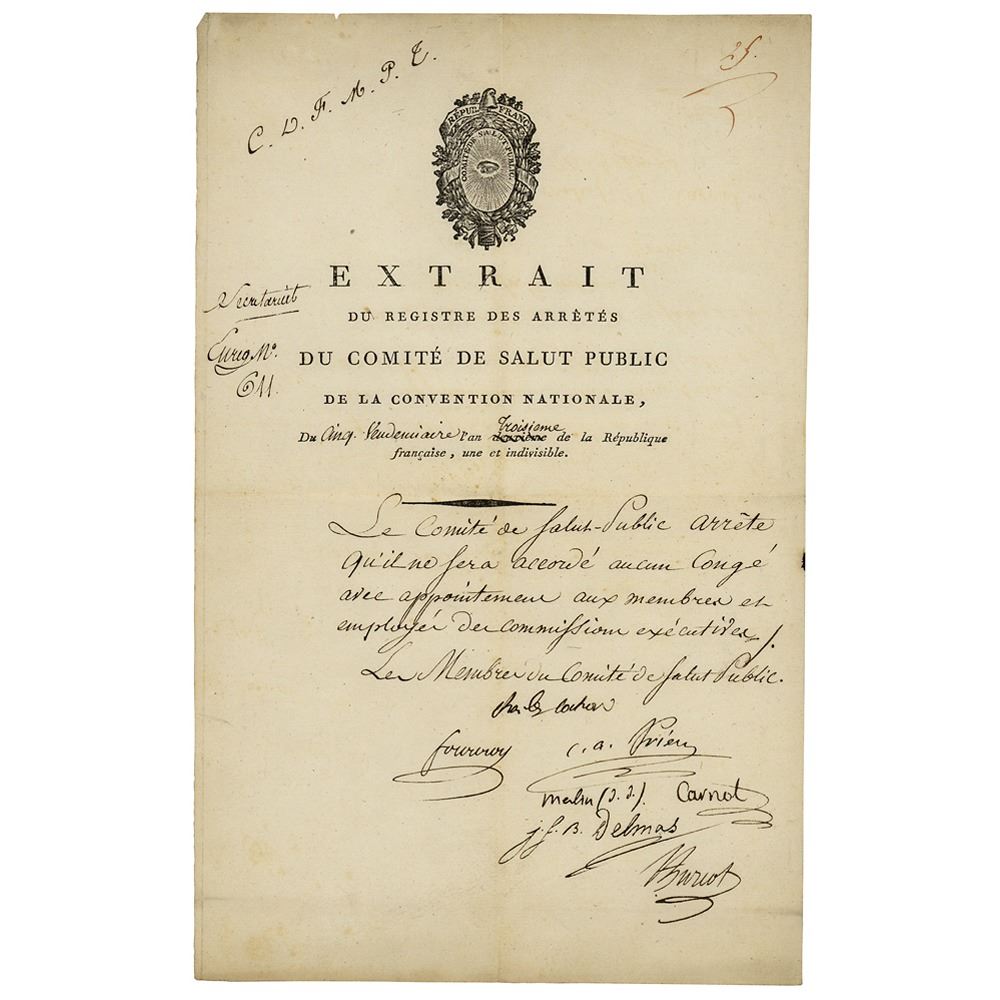 C. D. F. M. P. T.
25.
RÉPUB. FRANC.
COMITÉ DE SALUT PUBLIC.
EXTRAIT
Secrétariat
DU REGISTRE DES ARRÊTÉS
Enreg. No.
DU COMITÉ DE SALUT PUBLIC
611.
DE LA CONVENTION NATIONALE,
Du Cinq. Vendemiaire l'an deuxième Troisieme de la République
française, une et indivisible.
Le Comité de Salut-Public arrête
qu'il ne sera accordé aucun Congé
avec appointemens aux membres et
employés des commissions exécutives /.
Les Membres du Comité de Salut Public.
Charles Cochon
fourcroy c. a. Prieur
merlin (d. d.). Carnot
j. f. B. Delmas
Thuriot